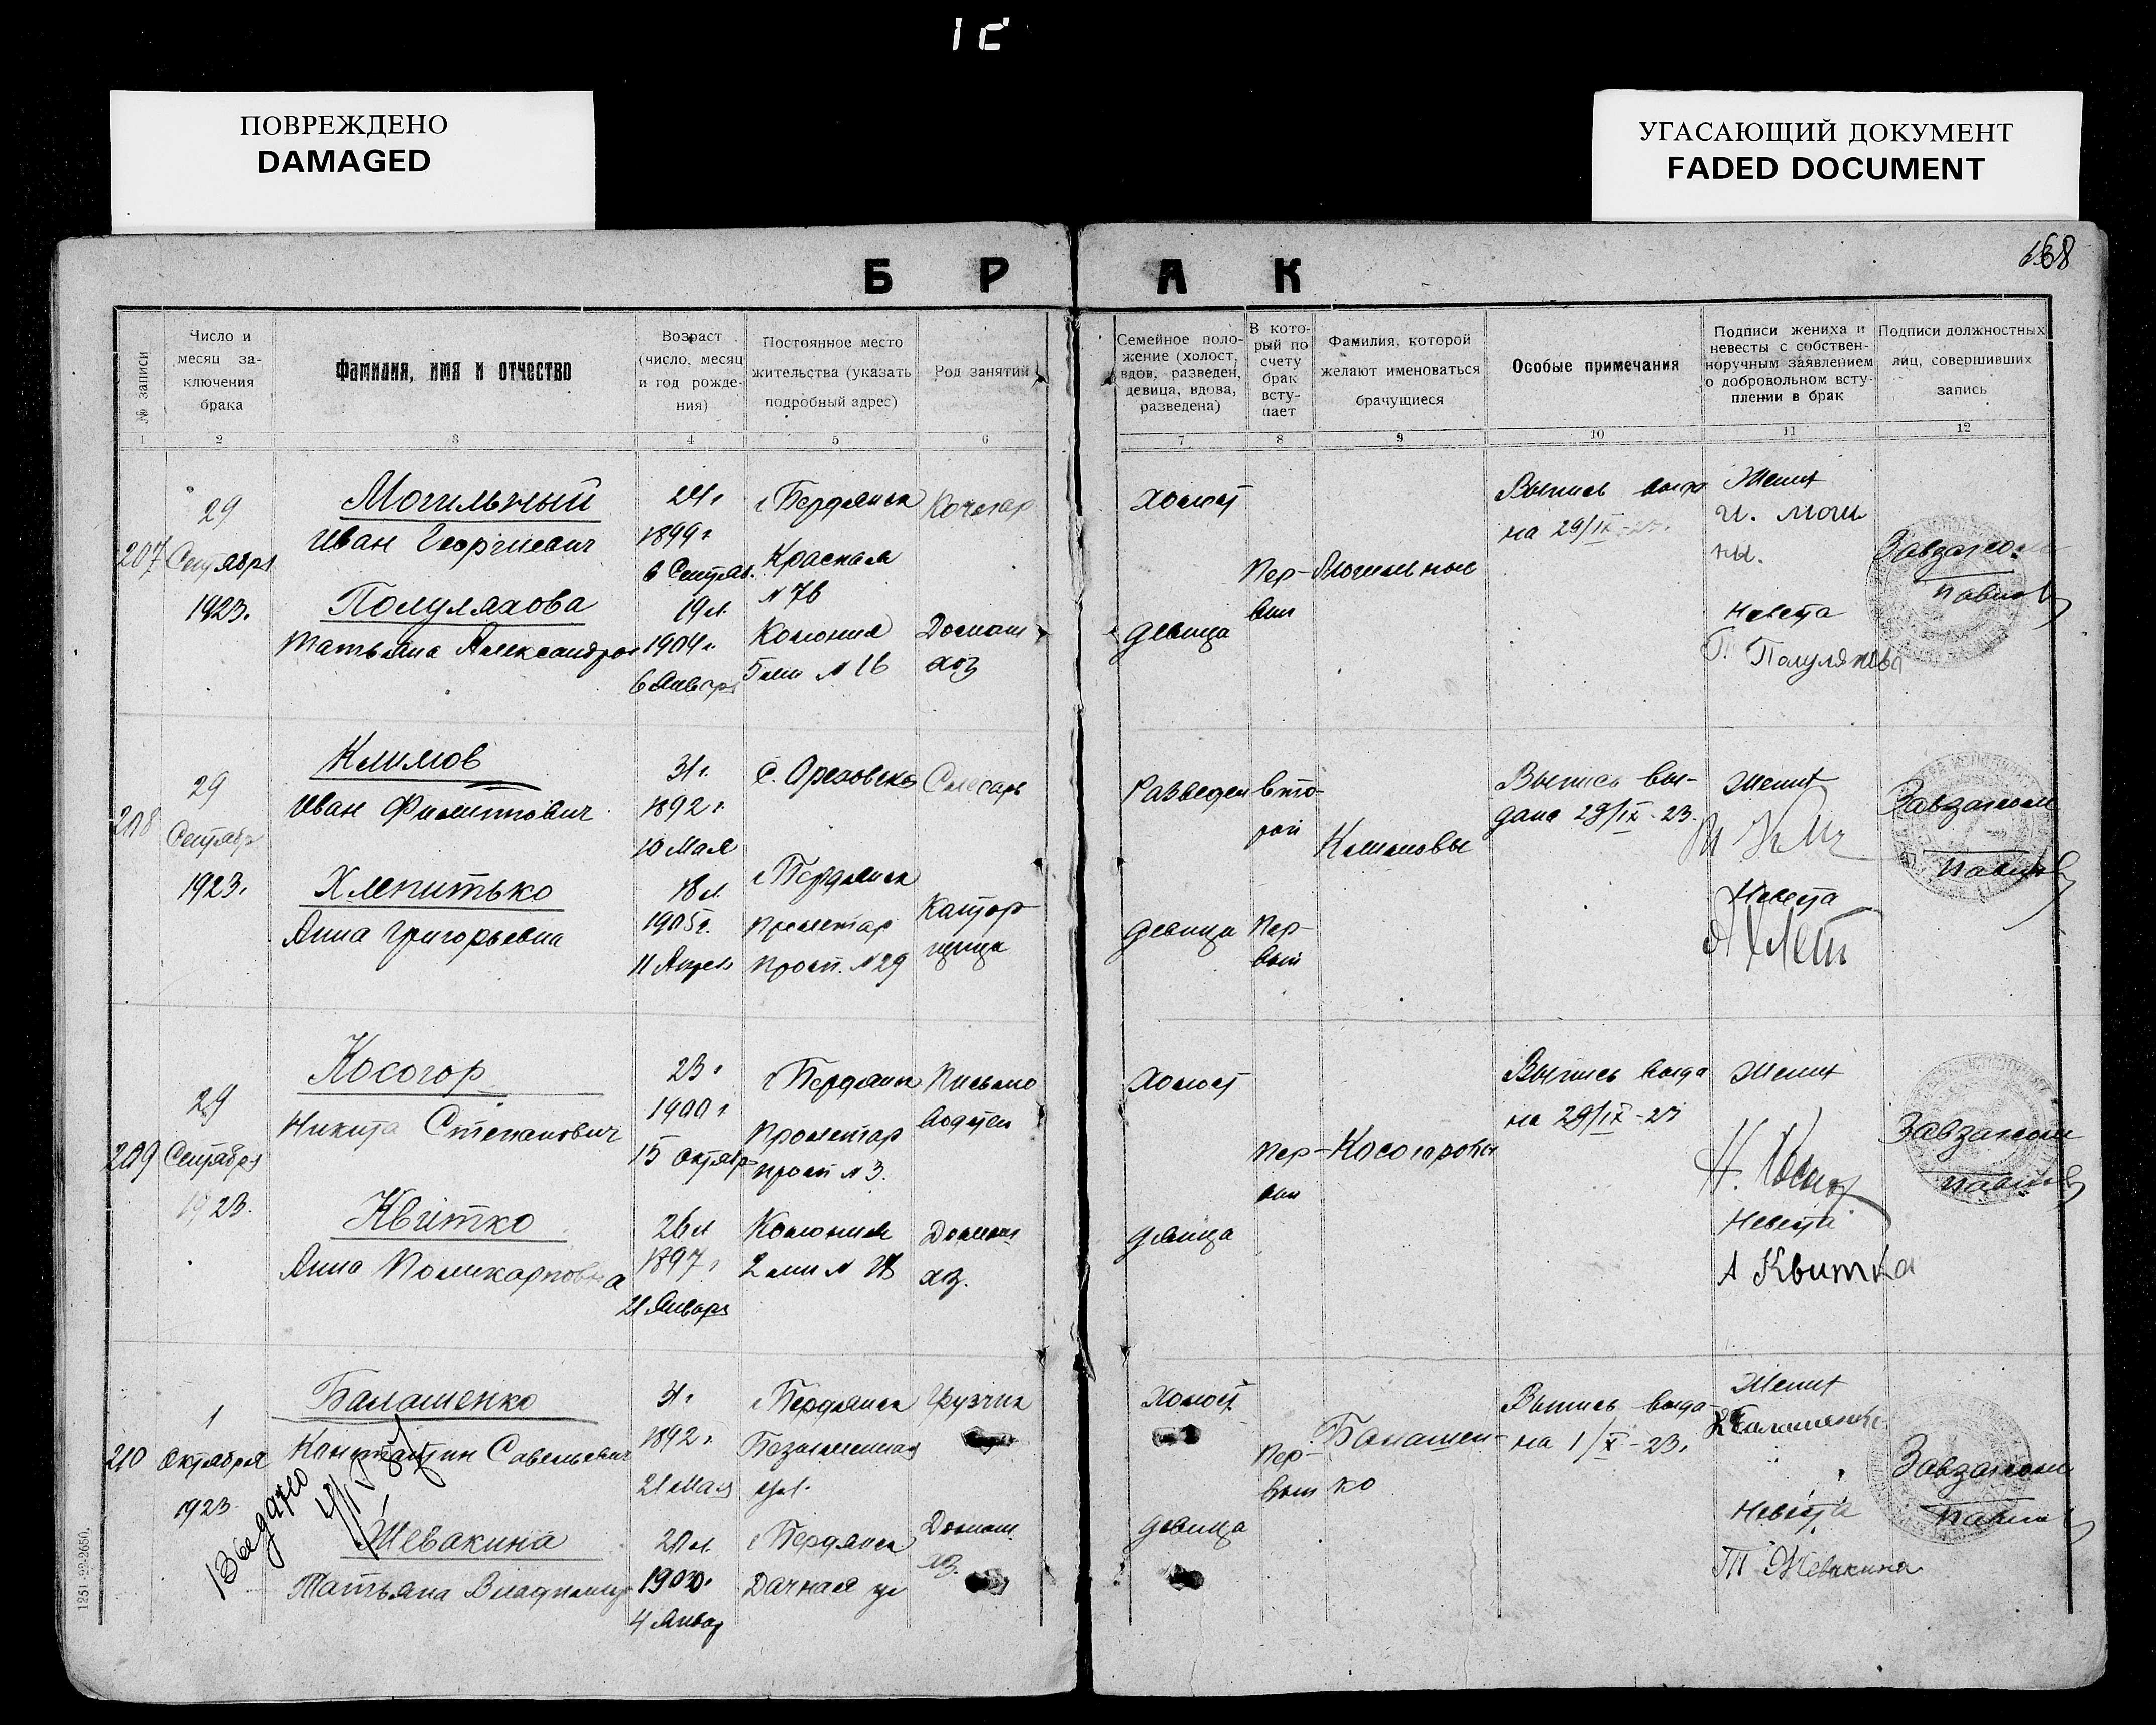 ПОВРЕЖДЕНО
DAMAGED
УГАСАЮЩИЙ ДОКУМЕНТ
FADED DOCUMENT
168
Б Р А К
№ записи
Число и
месяц за-
ключения
брака
Фамилия, имя и отчество
Возраст
(число, месяц
и год рожде-
ния)
Постоянное место
жительства (указать
подробный адрес)
Род занятий
Семейное поло-
жение (холост,
вдов, разведен,
девица, вдова,
разведена)
В кото-
рый по
счету
брак
всту-
пает
Фамилия, которой
желают именоваться
брачущиеся
Особые примечания
Подписи жениха и
невесты с собствен-
норучным заявлением
о добровольном всту-
плении в брак
Подписи должностных
лиц, совершивших
запись
1 2 3 4 5 6 7 8 9 10 11 12
207
29
Сентября
1923.
Могильный
Иван Георгиевич
Полуляхова
Татьяна Александров
24 г
1899 г
6 Сентяб.
19 л.
1904 г.
6 Января
г Бердянск
Красная
№ 76
Колония
5 лин № 16
Кочегар
Домаш
хоз
холост
девица
Пер-
вый
Могильные
Выпись выда
на 29/IX-23.
Жених
И. Моги
ны.
Невеста
Т. Полуляхова
Завзагсом
208
29
Сентябр
1923.
Климов
Иван Филиппович
Хлепитько
Анна Григорьевна
31 г.
1892 г
10 Мая
18 л.
1905 г.
11 Апрел
С. Ореховска
г Бердянск
Пролетар
просп. № 29
Слесарь
Разведен
девица
вто-
рой
Пер-
вый
Климовы
Выпись вы-
дана 29/IX-23.
Жених
Невеста
Завзагсом
209
29
Сентября
1923.
Косогор
Никита Степанович
Квитко
Анна Поликарповна
23 г
1900 г
15 Октябр
26 л
1897 г
21 Января
г Бердянск
Пролетар
просп № 3.
Колония
2 лин №
Письмо
водител
Домаш
хоз.
Холост
девица
Пер-
вый
Косогоровы
Выпись выда
на 29/IX-23
Жених
Невеста
А Квитка
Завзагсом
210
1
Октября
1923
Балашенко
Константин Савельевич
Шевакина
Татьяна Владимир
Выдано
31 г
1892 г.
21 Мая
20 л.
1903 г.
4 Январ
г Бердянск
Безымянная
ул.
г Бердянск
Дачная ул
Грузчик
Домаш
хоз.
Холост
девица
Пер-
вый
Балашен-
ко
Выпись выда-
на 1/X-23.
Жених
К Балашенко
Невеста
Т Шевакина
Завзагсом
1251-22-2650.